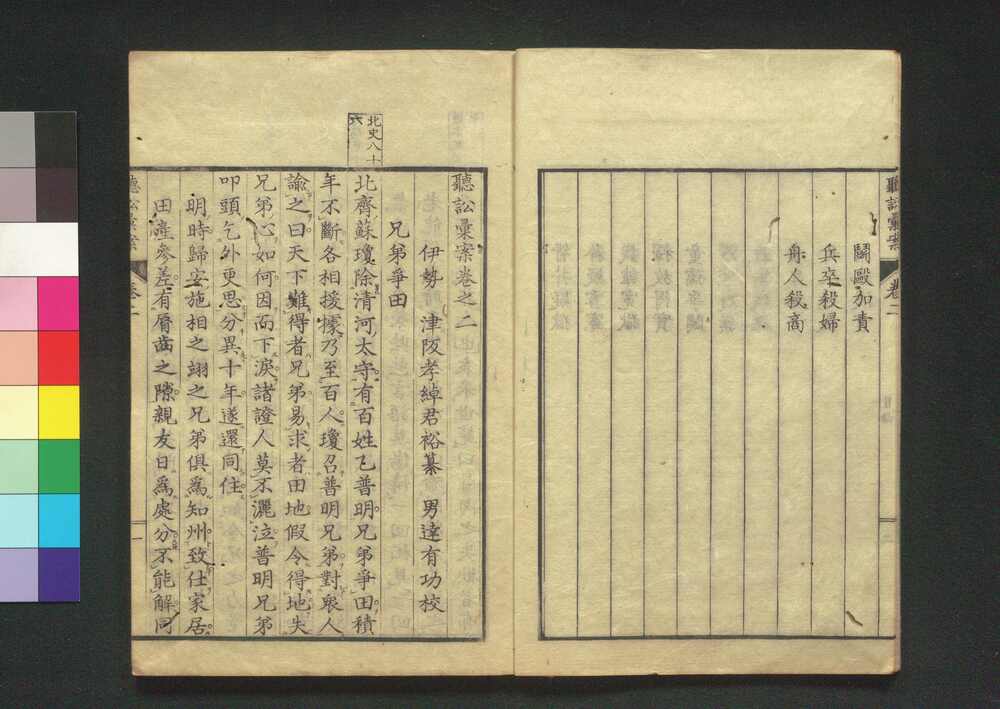 聽訟彙案 卷二
鬭毆加責
兵卒殺婦
舟人殺商
北史八十
六
聽訟彙案卷之二
伊勢 津阪孝綽君裕纂 男達有功校
兄弟爭田
北齊蘇瓊除清河太守有百姓乙普明兄弟爭田積
年不斷各相援據乃至百人瓊召普明兄弟對衆人
諭之曰天下難得者兄弟易求者田地假令得地失
兄弟心如何因而下淚諸證人莫不灑泣普明兄弟
叩頭乞外更思分異十年遂還同住
明時歸安施相之翊之兄弟俱爲知州致仕家居
田產參差有脣齒之隙親友日爲處分不能解同
聽訟彙案 卷二 一